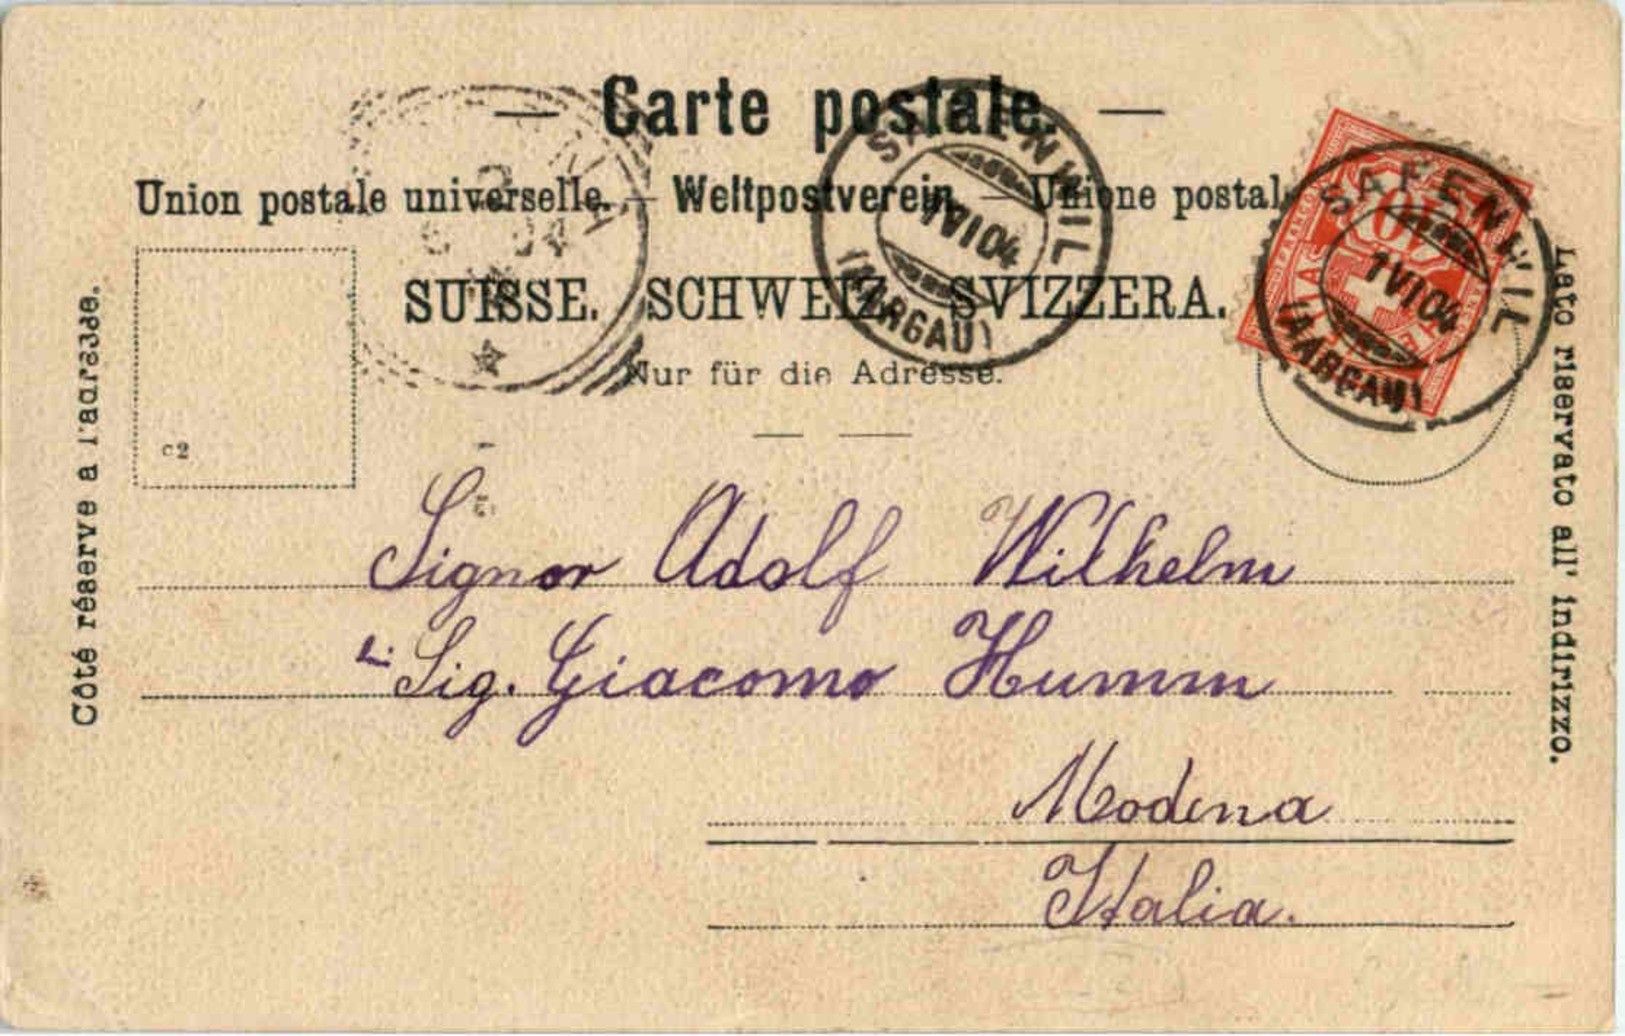 — Carte postale. —
Union postale universelle. — Weltpostverein — Unione postal
SUISSE. SCHWEIZ SVIZZERA.
Nur für die Adresse.
SAFENWIL
1 VI 04
(AARGAU)
SAFENWIL
1 VI 04
(AARGAU)
10
c2
Côté réserve a l'adresse.
Lato riservato all' indirizzo.
Signor Adolf Wilhelm
bei Sig. Giacomo Humm
Modena
Italia.